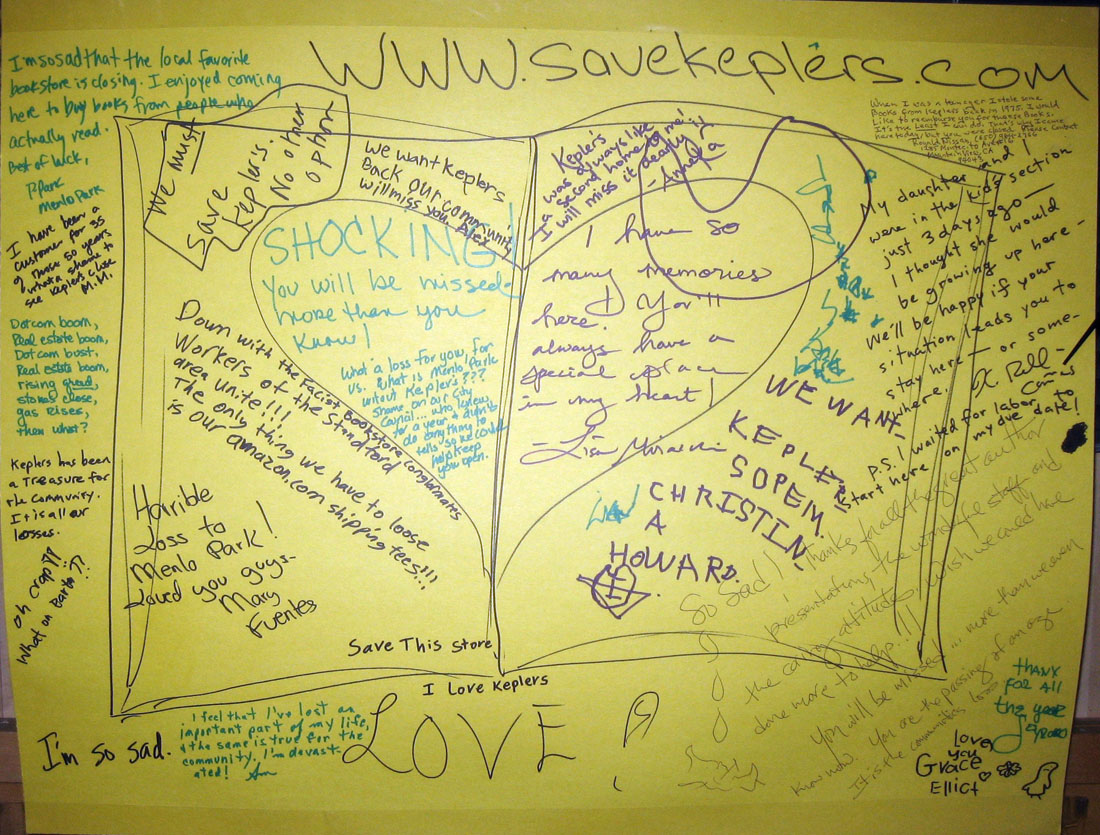 www.savekeplers.com
I'm so sad that the local favorite
bookstore is closing. I enjoyed coming
here to buy books from people who
actually read.
Best of luck,
P. Park
Menlo Park
I have been a
customer for 35
of those 50 years
what a shame to
see Keplers close
M.M.
Dotcom boom,
Real estate boom,
Dot com bust,
Real estate boom,
rising greed,
stores close,
gas rises,
then what?
Keplers has been
a Treasure for
the Community.
It is all our
losses.
Oh crap!?!
What on Earth!?
We must
save
Keplers.
No other
option
We want Keplers
Back our community
will miss you. Alex
SHOCKING!
You will be missed
more than you
know!
What a loss for you, for
us. What is Menlo Park
witout Keplers???
Shame on our City
Council... who knew
for a year & didn't
do anything to
tell us so we could
help keep
you open.
Down with the Facist Bookstore conglomarats
Workers of the Standford
area unite!!!
The only thing we have to loose
is our amazon.com shipping fees!!!
Horrible
Loss to
Menlo Park!
Loved you guys-
Mary
Fuentes
Save This Store
I Love Keplers
Keplers
was always like
a second home to me!
I will miss it dearly
I have so
many memories
here. You'll
always have a
special place
in my heart!
- Lisa
When I was a teenager I stole some
Books from Keplers back in 1975. I would
like to reimburse you for those Books.
It's the least I can do. That's why I came
here today, but you were closed. Please contact
Mountain View, CA
My daughter and I
were in the kids section
just 3 days ago —
I thought she would
be growing up here -
We'll be happy if your
situation leads you to
stay here — or some-
where.
P.S. I waited for labor to
start here on my due date!
WE WANT
KEPLER
S OPEM.
CHRISTIN
A
HOWARD.
So sad! Thanks for all the great author
presentations, the wonderful staff and
the caring attitudes. Wish we could have
done more to help!!!
You will be missed... more than we even
know now. You are the passing of an age
It is the communities loss
I'm so sad.
I feel that I've lost an
important part of my life,
& the same is true for the
community. I'm devast-
ated!
LOVE,
THANX
for All
the year
Love
you
Grace
Ellict